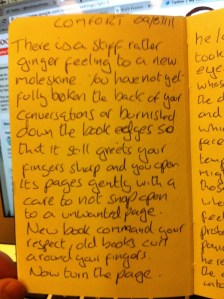 COMFORT 09/8/11
There is a stiff rather
ginger feeling to a new
moleskine. You have not yet
fully broken the back of your
conversations or burnished
down the book edges so
that it still greets your
fingers sharp and you open
its pages gently with a
care to not snap open
to a unwanted page.
New book command your
respect, old books curl
around your fingers.
Now turn the page.
he l
took
eye
whos
the
and
whi
face
tea
mig
tho
whe
feel
pr
here
the
into